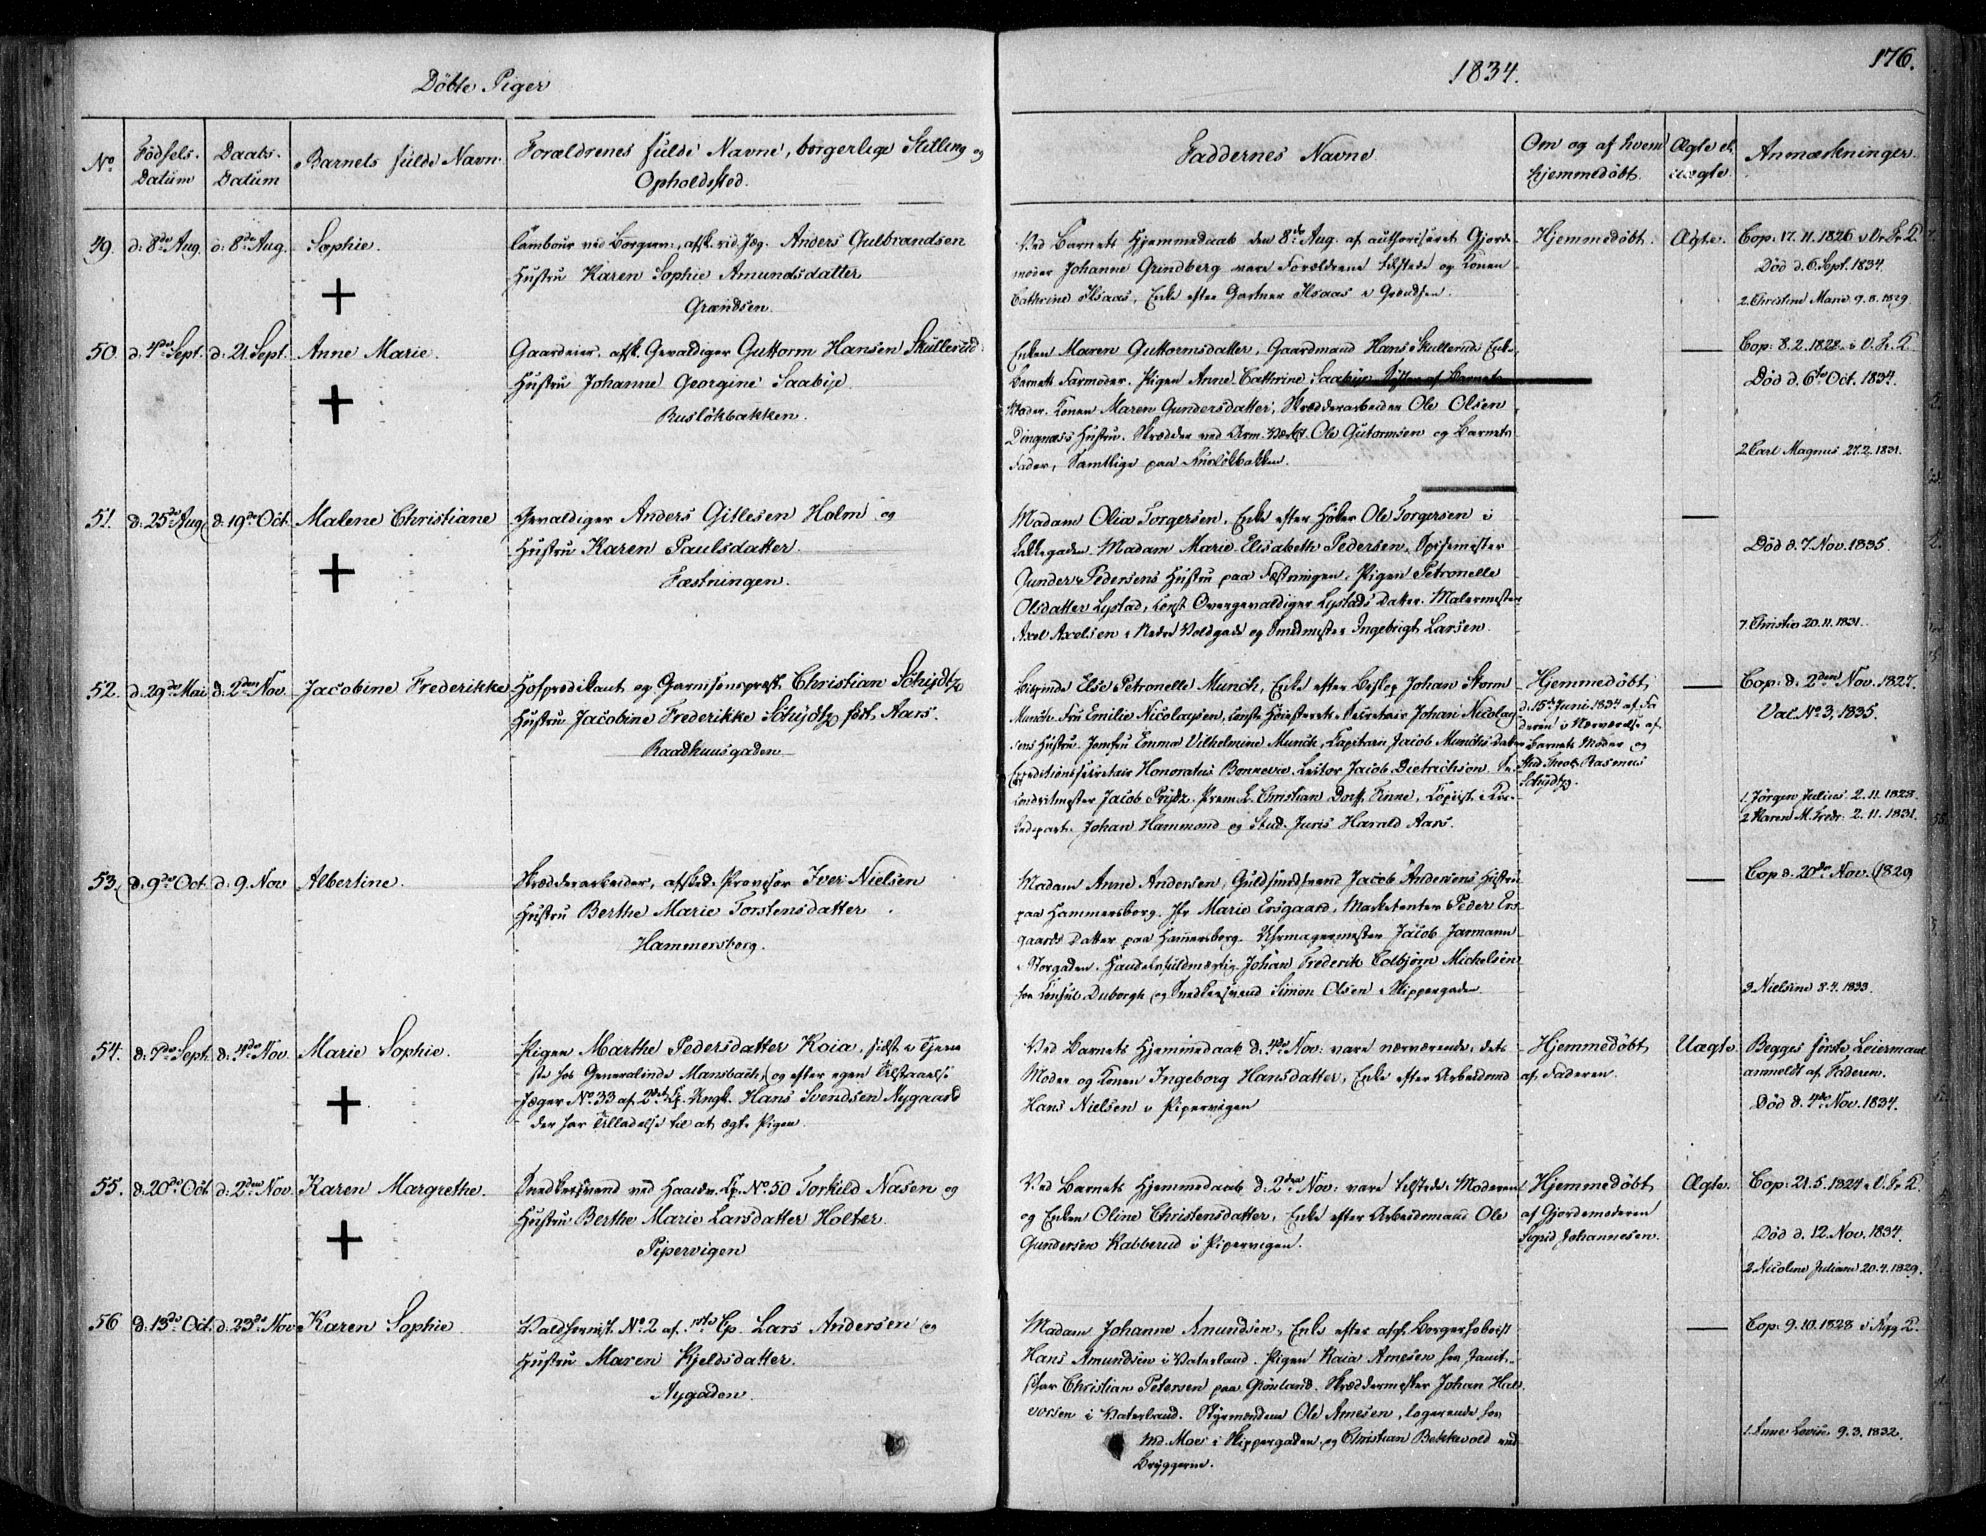 Døbte Piger
1834.
176.
No
Fødsels-
Datum
Daabs-
Datum
Barnets fulde Navn.
Forældrenes fulde Navne, borgerlige Stilling og
Opholdssted.
Faddernes Navne
Om og af hvem
hjemmedøbt.
Ægte el.
uægte.
Anmærkninger.
49. d: 8de Aug. d: 8de Aug. Sophie.
Tambour ved Borgerv., afsk. rid. Jæg. Anders Gulbrandsen
Hustru Karen Sophie Amundsdatter
Grændsen.
Ved Barnets Hjemmedaab den 8de Aug. af authoriseret Gjorde-
moder Johanne Grindberg vare Forældrene tilstede og Konen
Cathrine Ilsaas, Enke efter Gartner Ilsaas i Grændsen.
Hjemmedøbt.
Ægte.
Cop: 17.11.1826 i Vr. Fr. K.
Død d. 6 Sept. 1834.
2. Christine Marie 9.8.1829
50. d. 4de Sept. d. 21. Sept. Anne Marie.
Gaardeier, afsk. Gevaldiger Guttorm Hansen Skullerud
Hustru Johanne Georgine Saabye
Rusløkbakken.
Enken Maren Guttormsdatter, Gaardmand Hans Skulleruds Enke,
Barnets Farmoder. Pigen Anne Cathrine Saabye, Søster af Barnets
Moder. Konen Maren Gundersdatter, Skrædderarbeider Ole Olsen
Dingnæss Hustru. Skrædder ved Arm. Værkst. Ole Gutormsen og Barnets
Fader, Samtlige paa Rusløkbakken.
Cop: 8.2.1828 i V. F. K.
Død d. 6te Oct. 1834.
2 Carl Magnus 27.2.1831.
51. d: 25de Aug. d: 19de Oct. Malene Christiane
Gevaldiger Anders Gillesen Holm og
Hustru Karen Paulsdatter.
Fæstningen.
Madam Olia Torgersen, Enke efter Høker Ole Torgersen i
Lakkegaden. Madam Marie Elisabeth Pedersen, Spisemester
Gunder Pedersens Hustru paa Fæstningen. Pigen Petronelle
Olsdatter Lystad, Const. Overgevaldiger Lystads Datter. Malermester
Axel Axelsen i Nedre Voldgade og Smedmester Ingebrigt Larsen.
Død d. 7 Nov. 1835.
7. Christie 20.11.1831.
52. d. 29de Mai d: 2den Nov. Jacobine Frederikke
Hofprædikant og Garnisonsprest Christian Schydtz
Hustru Jacobine Frederikke Schydtz født Aars.
Raadhuusgaden
Bispinde Else Petronelle Munch, Enke efter Biskop Johan Storm
Munch. Fru Emilie Nicolaysen, Const. Høiesterets-Secretair Johan Nicolay-
sens Hustru. Jomfru Emma Vilhelmine Munch, Kapitain Jacob Munchs Datter
Expeditionssecretair Honoratus Bonnevie. Lector Jacob Dietrichson. Se-
condritmester Jacob Prydz. Prem. L. Christian Dorff Finne, Copist i Kir-
kedepart. Johan Hammond og Stud. Juris Harald Aars.
Hjemmedøbt
d. 15de Juni 1834 af Fa-
deren i Nærværelse af
Barnets Moder og
Stud. Theol. Rasmus
Schydtz.
Cop: d. 2den Nov. 1827.
Vac. No 3, 1835.
1. Jørgen Julius 2.11.1828.
2 Karen M. Fredr. 2.11.1831.
53. d. 9de Oct. d: 9 Nov Albertine.
Skrædderarbeider, afsked. Provisor Iver Nielsen
Hustru Berthe Marie Torstensdatter
Hammersborg.
Madam Anne Andersen, Guldsmedsvend Jacob Andersens Hustru
paa Hammersborg. Jfr Marie Ersgaard, Marketenter Peder Ers-
gaards Datter paa Hammersborg. Uhrmagermester Jacob Jarmann
i Storgaden. Handelsfuldmægtig Johan Frederik Colbjørn Michelsen
for Consul Duborgh og Snedkersvend Simon Olsen i Skippergaden.
Cop d. 20de Nov. (1829
3 Nielsine 8.4.1833.
54. d: 7de Sept. d: 4de Nov. Marie Sophie.
Pigen Marthe Pedersdatter Koia, sidst i Tjene-
ste hos Generalinde Mansbach, og efter egen Tilstaaelse
Jæger No 33 af 2det Cp. Hans Svendsen Nygaard
der har Tilladelse til at ægte Pigen.
Ved Barnets Hjemmedaab d. 4de Nov: vare nærværende: dets
Moder og Konen Ingeborg Hansdatter, Enke efter Arbeidsmd
Hans Nielsen i Pipervigen
Hjemmedøbt
af Faderen.
Uægte
Begges første Leiermaal
anmeldt af Faderen.
Død d. 4de Nov. 1834.
55. d: 20de Oct. d: 2den Nov. Karen Margrethe.
Snedkersvend ved Haandv. Cp. No 50 Torkild Nasen og
Hustru Berthe Marie Larsdatter Holter
Pipervigen
Ved Barnets Hjemmedaab d. 2den Nov: vare tilstede: Moderen
og Enken Oline Christensdatter, Enke efter Arbeidsmand Ole
Gundersen Kabberud i Pipervigen.
Hjemmedøbt
af Gjordemoderen
Sigrid Johannesen.
Ægte.
Cop: 21.5.1824 i V. Fr. K.
Død d. 12. Nov. 1834.
2 Nicoline Juliane 20.4.1829.
56 d: 13de Oct. d: 23de Nov. Karen Sophie
Valdhornist No 2 af 1ste Cp. Lars Andersen og
Hustru Maren Kjeldsdatter.
Nygaden.
Madam Johanne Amundsen, Enke efter afsk. Borgerhoboist
Hans Amundsen i Vaterland. Pigen Kaia Arnesen hos Janit-
schar Christian Petersen paa Grønland. Skræddermester Johan Hal-
vorsen i Vaterland. Styrmændene Ole Arnesen, logerende hos
Md. Moe i Skippergaden og Christian Bekkevold ved
Bryggerne.
Cop: 9.10.1828 i Agg. K.
1. Anne Lovise 9.3.1832.